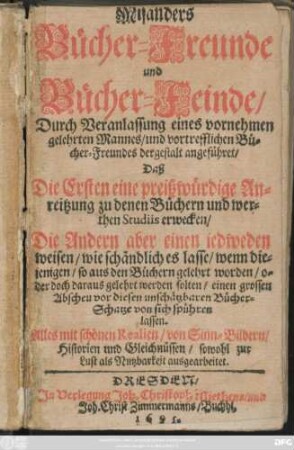 Misanders
Bücher-Freunde
und
Bücher-Feinde/
Durch Veranlassung eines vornehmen
gelehrten Mannes/und vortrefflichen Bü-
cher-Freundes dergestalt angeführet/
Daß
Die Ersten eine preißwürdige An-
reitzung zu denen Büchern und wer-
then Studiis erwecken/
Die Andern aber einen jedweden
weisen/wie schändlich es lasse/wenn die-
jenigen/so aus den Büchern gelehrt worden/o-
der doch daraus gelehrt werden solten/einen grossen
Abscheu vor diesen unschätzbaren Bücher-
Schatze von sich spühren
lassen.
Alles mit schönen Realien/von Sinn-Bildern/
Historien und Gleichnüssen/sowohl zur
Lust als Nutzbarkeit ausgearbeitet.
DRESDEN/
In Verlegung Joh. Christoph und
Joh. Christ Zimmermanns/Buchhl.